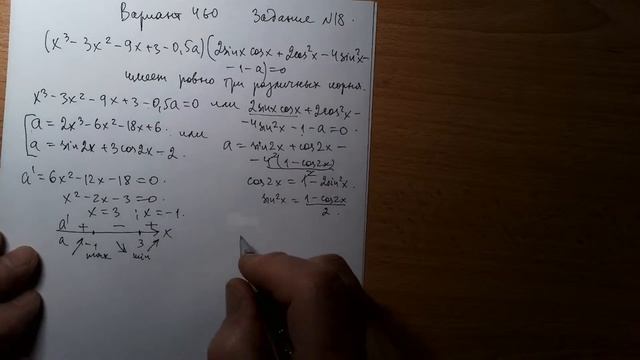 Вариант 460 Задание №18.
(x³ – 3x² – 9x + 3 – 0,5a)(2sinx cosx + 2cos²x – 4sin²x –
– 1 – a) = 0
имеет ровно три различных корня.
x³ – 3x² – 9x + 3 – 0,5a = 0 или 2sinx cosx + 2cos²x –
– 4sin²x – 1 – a = 0.
a = 2x³ – 6x² – 18x + 6. или
a = sin2x + 3cos2x – 2.
a = sin2x + cos2x –
– 4(1 – cos2x)
2
a' = 6x² – 12x – 18 = 0.
x² – 2x – 3 = 0.
x = 3 ; x = –1.
cos2x = 1 – 2sin²x.
sin²x = 1 – cos2x
2.
a' + – + x
a –1 3
max min